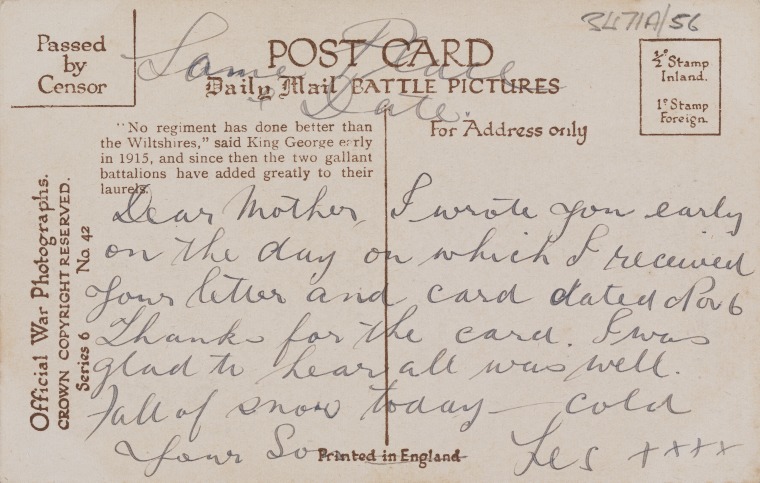 3471A/56
Passed
by
Censor
POST CARD
Daily Mail BATTLE PICTURES
Same Place
+ Date.
½ᴰ Stamp
Inland.
1ᴰ Stamp
Foreign.
For Address only
"No regiment has done better than
the Wiltshires," said King George early
in 1915, and since then the two gallant
battalions have added greatly to their
laurels.
Official War Photographs.
CROWN COPYRIGHT RESERVED.
Series 6 No. 42
Dear Mother, I wrote you early
on the day on which I received
Your letter and card dated Nov 6
Thanks for the card. I was
glad to hear all was well.
Fall of snow today – cold
Your Son Les ××××
Printed in England